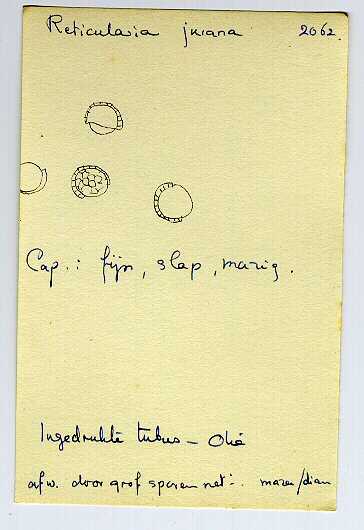 Reticularia jurana 2062.
Cap.: fijn, slap, mazig.
Ingedrukte tubus – Olie
afw. door grof sporen net